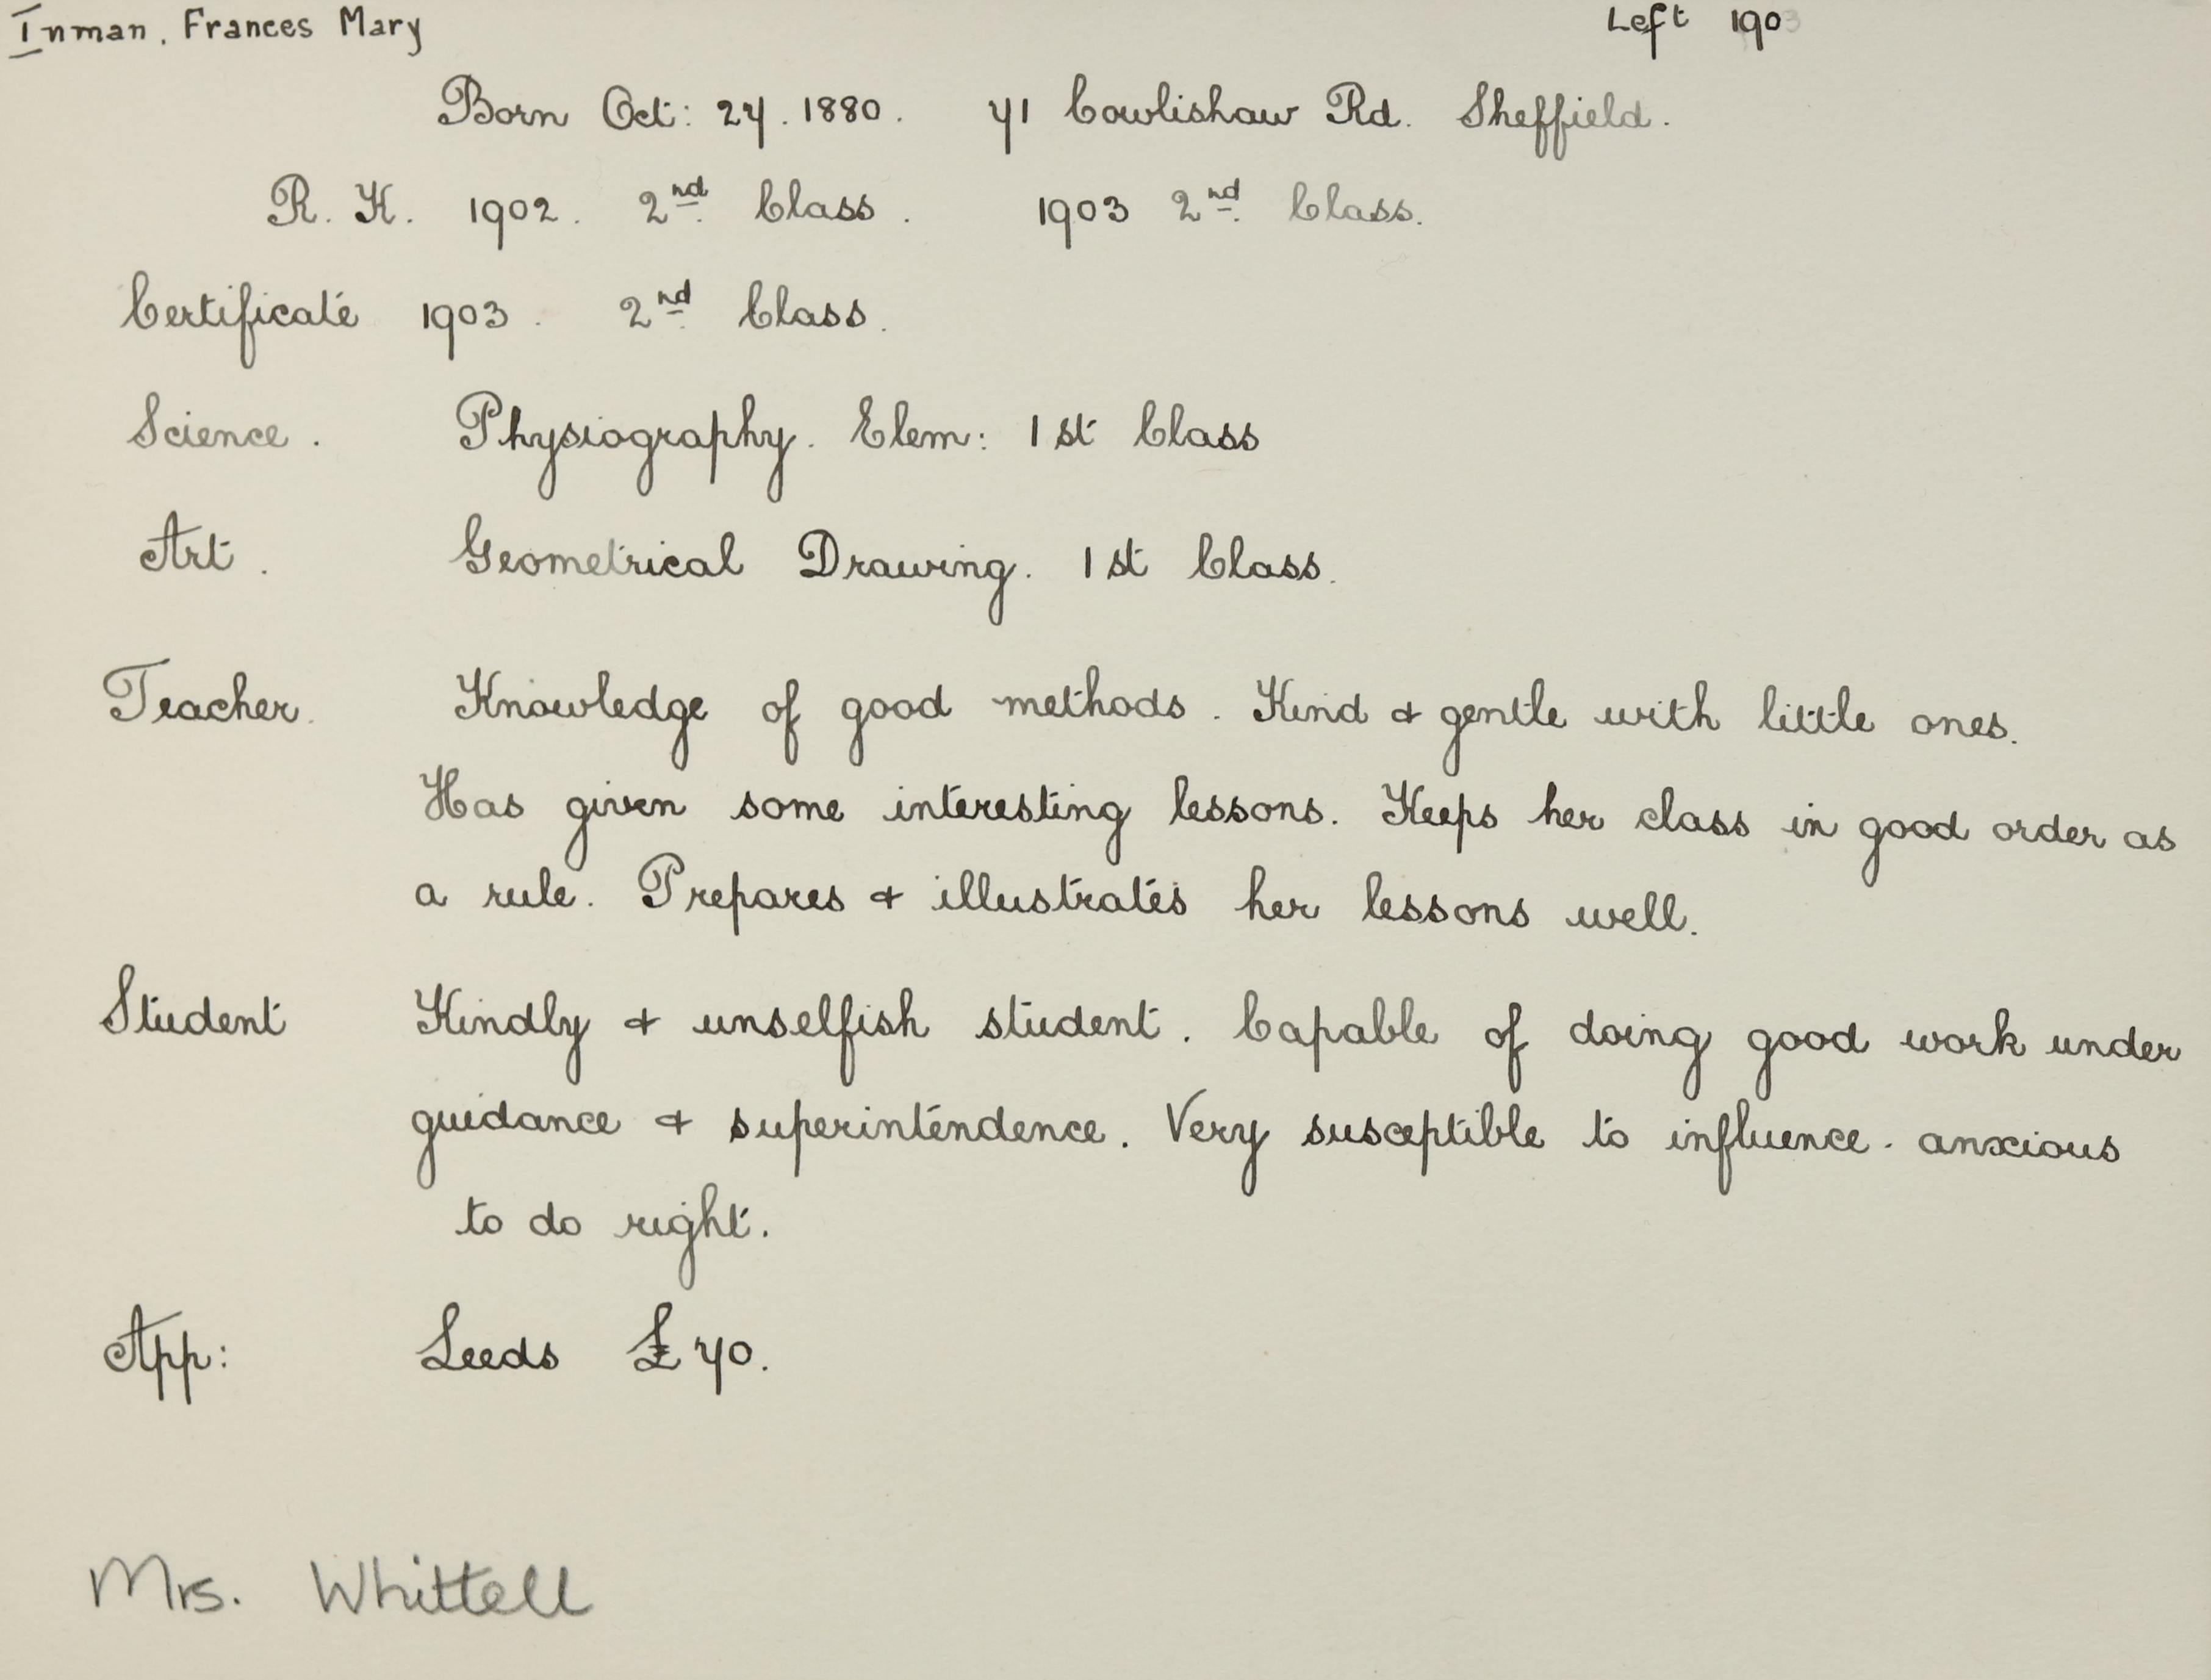 Inman, Frances Mary Left 1903
Born Oct: 27. 1880. 71 Cowlishaw Rd. Sheffield.
R. K. 1902. 2nd Class. 1903 2nd Class.
Certificate 1903. 2nd Class.
Science. Physiography. Elem: 1st Class
Art. Geometrical Drawing. 1st Class.
Teacher. Knowledge of good methods. Kind & gentle with little ones.
Has given some interesting lessons. Keeps her class in good order as
a rule. Prepares & illustrates her lessons well.
Student Kindly & unselfish student. Capable of doing good work under
guidance & superintendence. Very susceptible to influence. anxious
to do right.
App: Leeds £70.
Mrs. Whittell